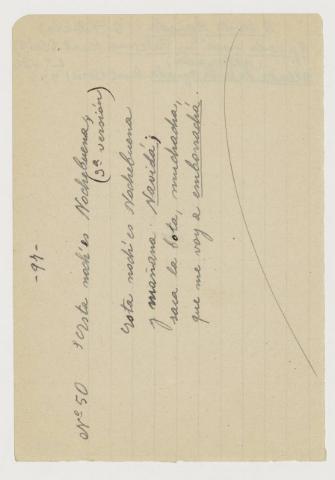 -94-
Nº 50 "Esta noch'es Nochebuena"
(3ª versión)
Esta noch'es Nochebuena
y mañana Navidá;
saca la bota, muchacha,
que me voy a emborrachá.